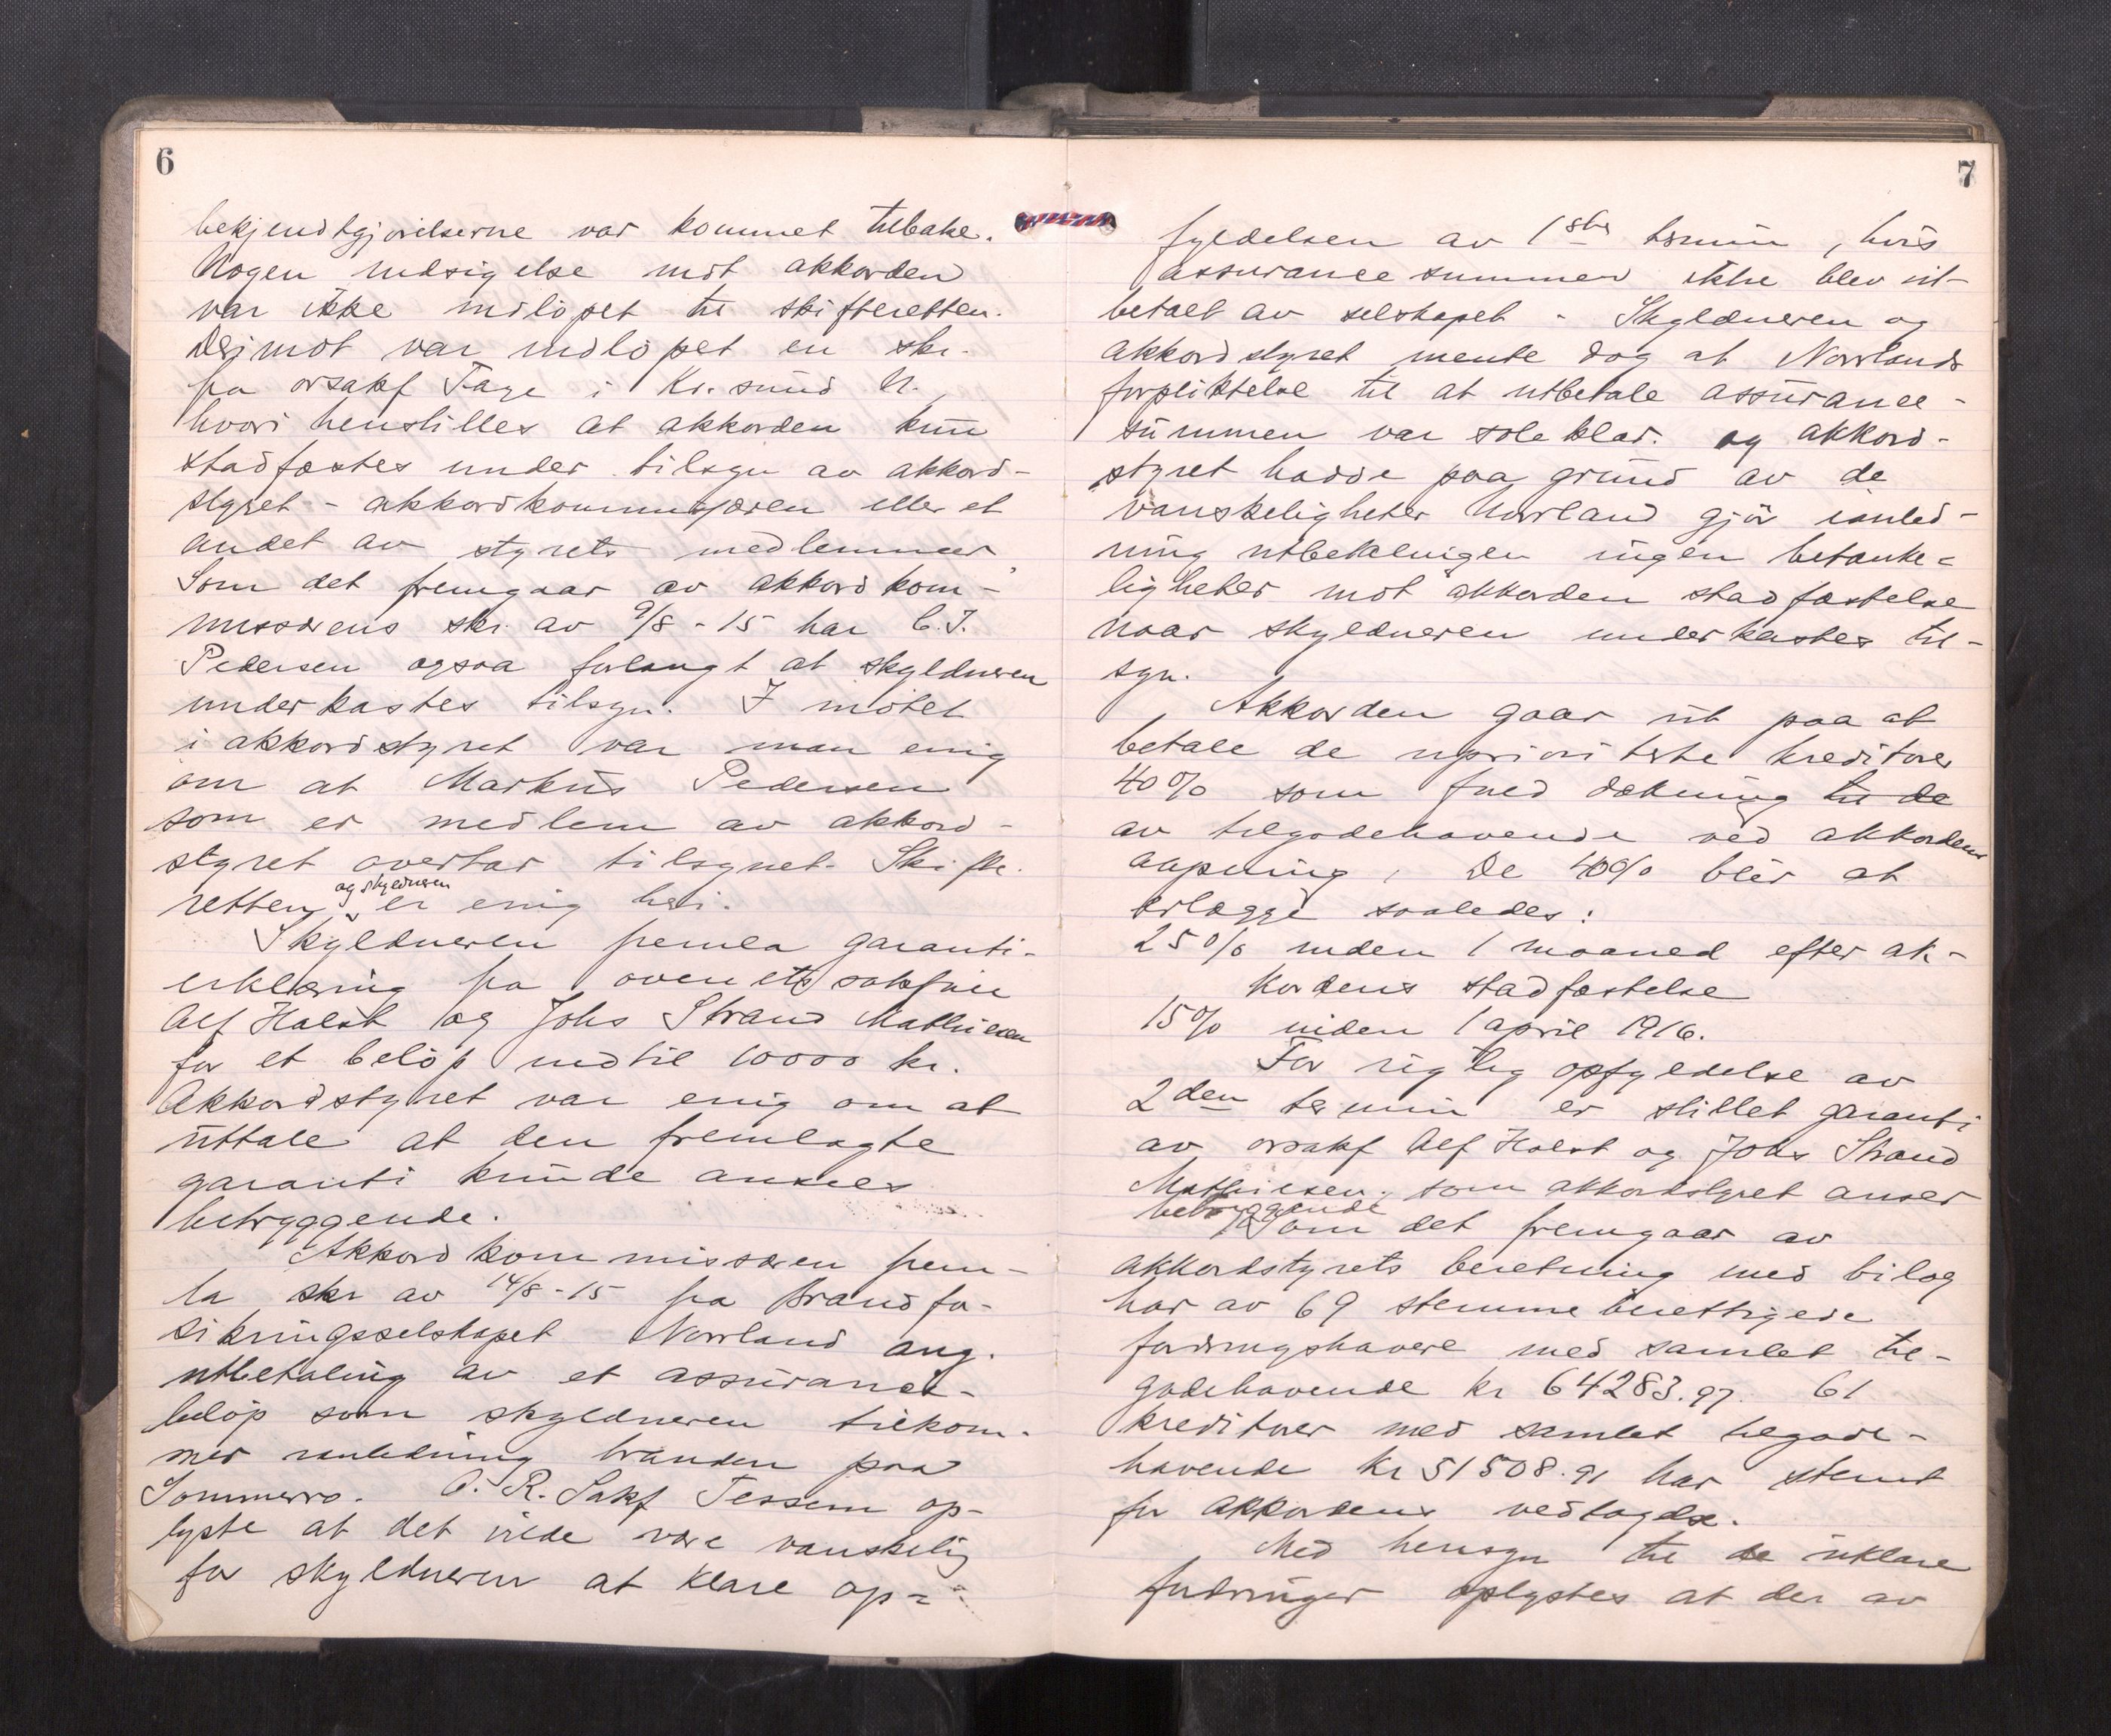 6
bekjendtgjørelserne var kommet tilbake.
Nogen indsigelse mot akkorden
var ikke indløpet til skifteretten.
Derimot var indløpet en skr.
fra orsakf Tage i Kr. sund N.
hvori henstilles at akkorden kun
stadfæstes under tilsyn av akkord-
styret - akkordkommissæren eller et
andet av styrets medlemmer.
Som det fremgaar av akkordkom-
missærens skr. av 9/8 - 15 har C. J.
Pedersen ogsaa forlangt at skyldneren
underkastes tilsyn. I møtet
i akkordstyret var man enig
om at Markus Pedersen
som er medlem av akkord-
styret overtar tilsynet. Skifte-
retten og skyldneren er enig heri.
Skyldneren fremla garanti-
erklæring fra overretssakfører
Alf Holst og Johs Strand Mathiesen
for et beløp indtil 10000 kr.
Akkordstyret var enig om at
uttale at den fremlagte
garanti kunde ansees
betryggende.
Akkordkommissæren frem-
la skr av 14/8 - 15 fra Brandfor-
sikringsselskapet Norrland ang.
utbetaling av et assurance-
beløp som skyldneren tilkom-
mer ianledning branden paa
Sommerro. O. R. Sakf Tessem op-
lyste at det vilde være vanskelig
for skyldneren at klare op-
7
fyldelsen av 1ste termin, hvis
assurancesummen ikke blev ut-
betalt av selskapet - Skyldneren og
akkordstyret mente dog at Norrlands
forpliktelse til at utbetale assurance-
summen var soleklar. og akkord-
styret hadde paa grund av de
vanskeligheter Norrland gjør ianled-
ning utbetalingen ingen betænke-
ligheter mot akkorden stadfæstelse
naar skyldneren underkastes til-
syn.
Akkorden gaar ut paa at
betale de upriorite̱rte kreditorer
40% som fuld dækning til de
av tilgodehavende ved akkordens
aapning, De 40% blir at
erlægge saaledes:
25% inden 1 maaned efter ak-
kordens stadfæstelse
15% inden 1 april 1916.
For rigtig opfyldelse av
2den termin er stillet garanti
av orsakf Alf Holst og Johs Strand
Mathiesen. som akkordstyret anser
betryggende
Som det fremgaar av
akkordstyrets beretning med bilag
har av 69 stemmeberettigede
fordringshavere med samlet til-
godehavende kr 64283.97. 61
kreditorer med samlet tilgode-
havende kr 51508.91 har stemt
for akkordens vedtagelse.
Med hensyn til de uklare
fordringer oplystes at der av